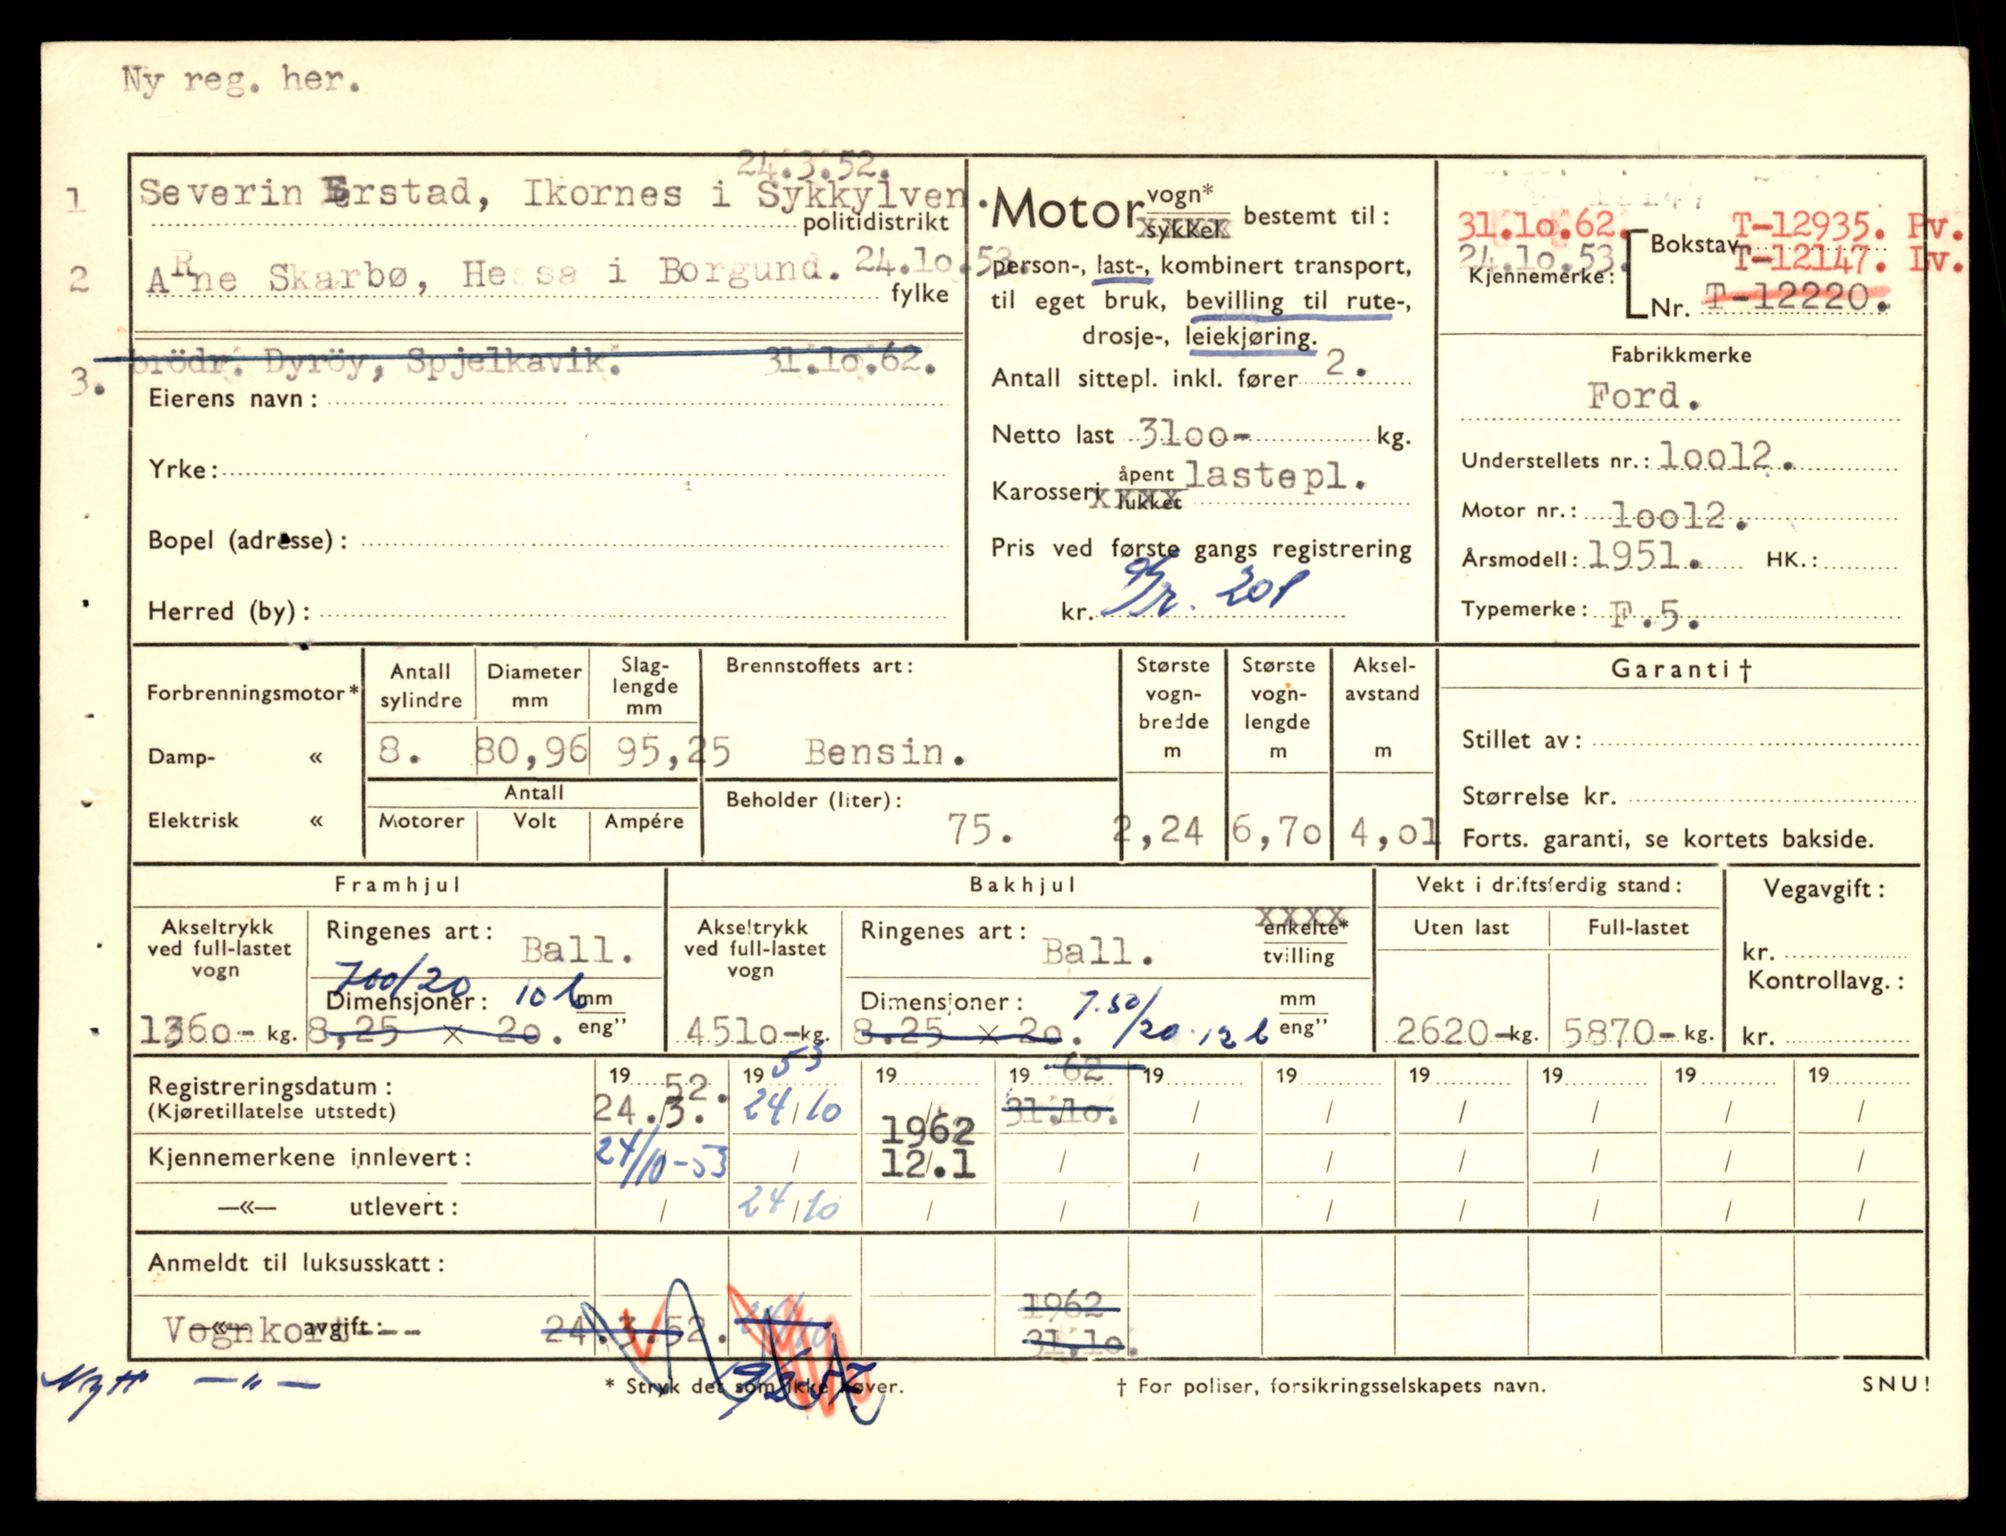 Ny reg. her.
24.3.52.
1 Severin Erstad, Ikornes i Sykkylven.
politidistrikt
2 ARne Skarbø, Hessa i Borgund. 24.1o.53.
fylke
3. brödr. Dyröy, Spjelkavik. 31.1o.62.
Eierens navn:
Yrke:
Bopel (adresse):
Herred (by):
Motor vogn* / sykkel bestemt til:
xxxx
person-, last-, kombinert transport,
til eget bruk, bevilling til rute-,
drosje-, leiekjøring.
Antall sittepl. inkl. fører 2.
Netto last 31oo- kg.
Karosseri åpent / lukket lastepl.
xxxx
Pris ved første gangs registrering
kr. 208
31.1o.62. T-12935. Pv.
Bokstav
24.1o.53. T-12147. Lv.
Kjennemerke:
Nr. T-12220.
Fabrikkmerke
Ford.
Understellets nr.: 1oo12.
Motor nr.: 1oo12.
Årsmodell: 1951. HK.:
Typemerke: F.5.
Forbrenningsmotor*
Damp- «
Elektrisk «
Antall sylindre
Diameter mm
Slag-lengde mm
8. 80,96 95,25
Antall
Motorer Volt Ampére
Brennstoffets art:
Bensin.
Beholder (liter):
75.
Største vogn-bredde m
Største vogn-lengde m
Aksel-avstand m
2,24 6,7o 4,o1
Garanti †
Stillet av:
Størrelse kr.
Forts. garanti, se kortets bakside.
Framhjul
Akseltrykk ved full-lastet vogn
136o- kg.
Ringenes art: Ball.
700/20 10 l
Dimensjoner: mm / eng”
8,25 x 2o.
Bakhjul
Akseltrykk ved full-lastet vogn
451o- kg.
Ringenes art: Ball.
xxxx
enkelte* / tvilling
Dimensjoner: 7.50/20. 12 l mm / eng”
8.25 x 2o.
Vekt i driftsferdig stand:
Uten last Full-lastet
2620- kg. 5870- kg.
Vegavgift:
kr.
Kontrollavg.:
kr.
19 52. 19 53 19 19 62 19 19 19 19 19 19
Registreringsdatum:
(Kjøretillatelse utstedt) 24./3. 24/10 / 31.1o. / / / / / /
1962
Kjennemerkene innlevert: 24/10-53 / 12.1 / / / / / / /
—«— utlevert: / 24/10 / / / / / / / /
Anmeldt til luksusskatt:
1962
—«— avgift:
Vognkort -- 24.3.52. 24/10 31.1o.
Nytt —"—
* Stryk det som ikke høver.
† For poliser, forsikringsselskapets navn.
SNU!